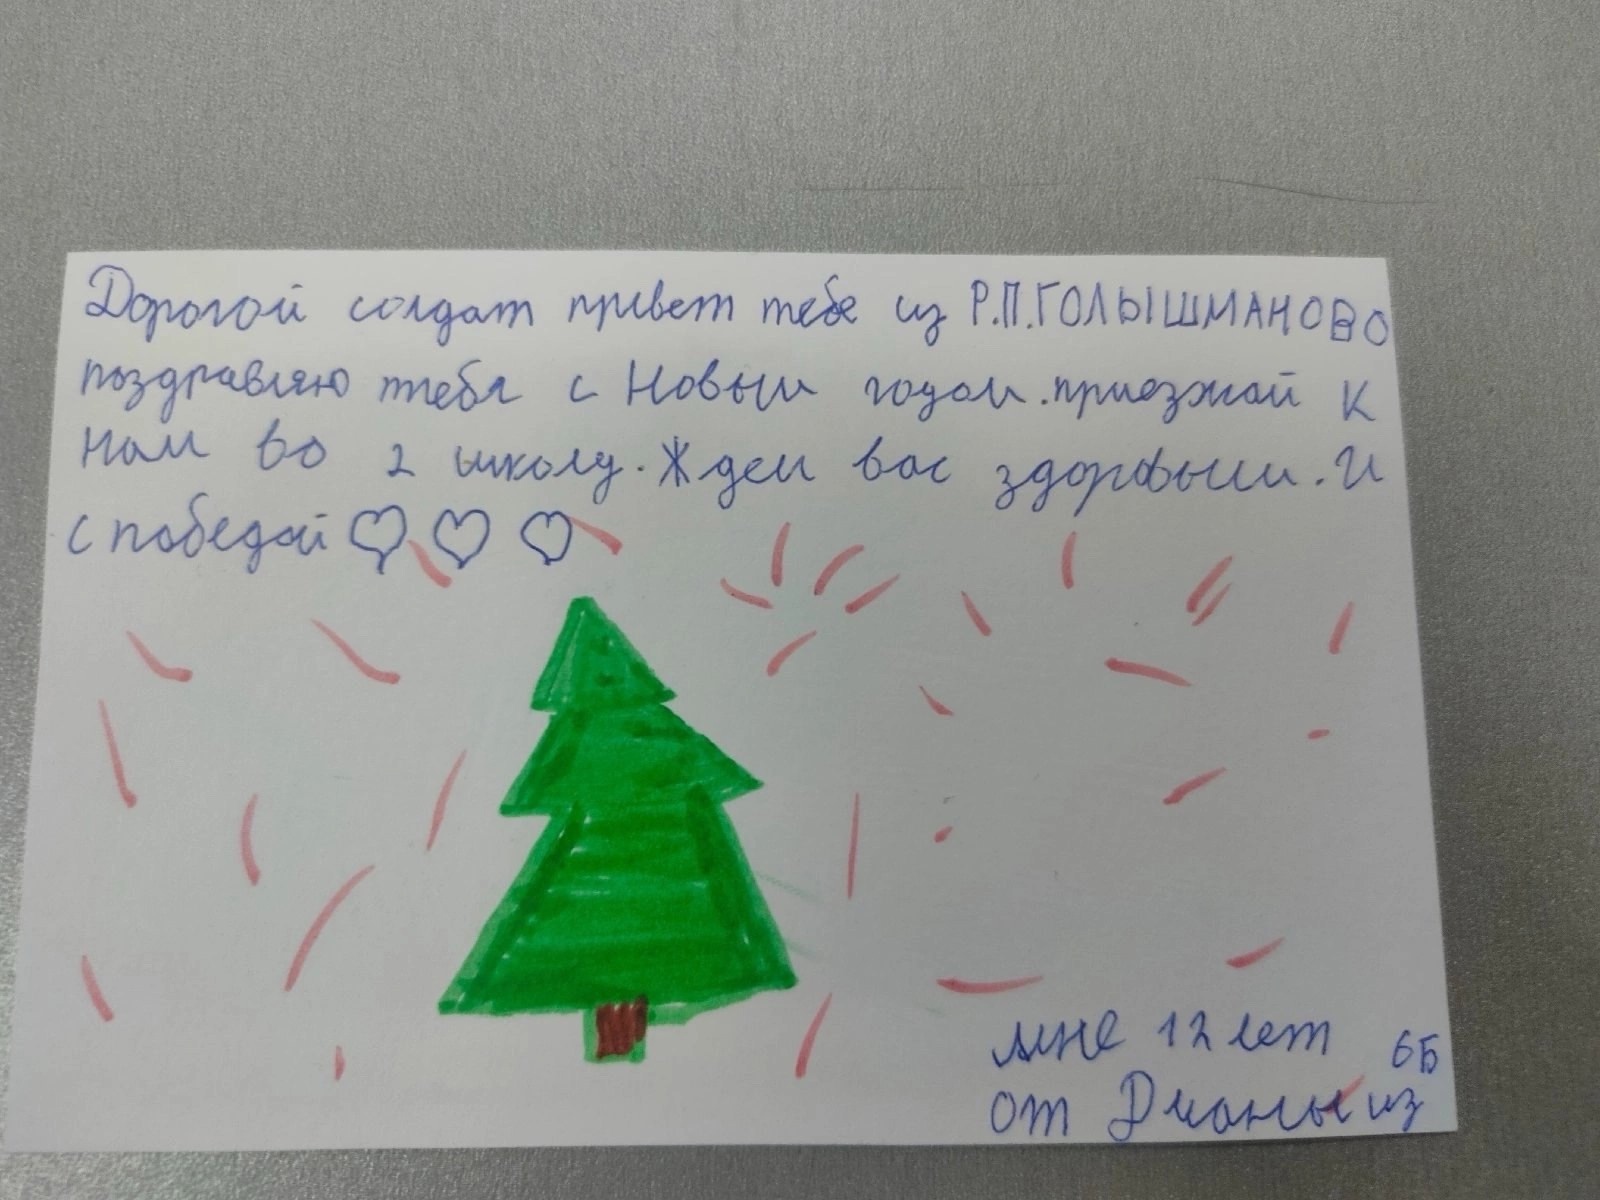 Дорогой солдат привет тебе из Р.П.ГОЛЫШМАНОВО
поздравляю тебя с Новым годом.приезжай к
нам во 2 школу. Ждем вас здоровыми. И
с победой ♡ ♡ ♡
мне 12 лет 6Б
от Дианы из